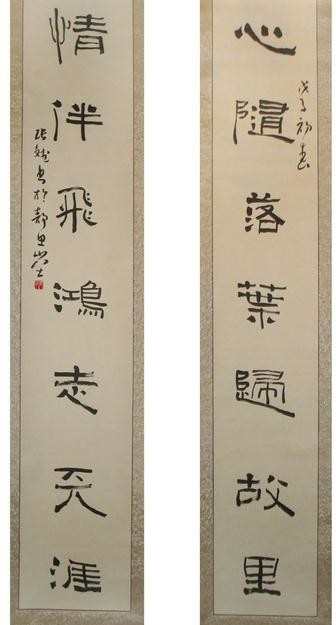 心隨落葉歸故里
戊子初春
情伴飛鴻走天涯